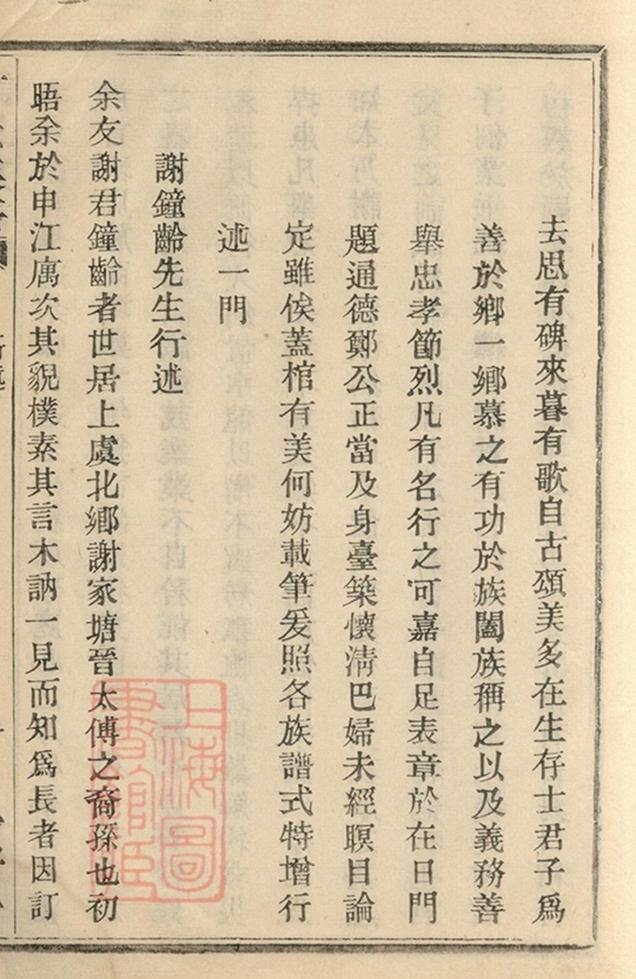 去思有碑來暮有歌自古頌美多在生存士君子爲
善於鄉一鄉慕之有功於族闔族稱之以及義務善
舉忠孝節烈凡有名行之可嘉自足表章於在日門
題通德鄭公正當及身臺築懷淸巴婦未經瞑目論
定雖俟蓋棺有美何妨載筆爰照各族譜式特增行
述一門
謝鐘齡先生行述
余友謝君鐘齡者世居上虞北鄉謝家塘晉太傅之裔孫也初
晤余於申江厲次其貌樸素其言木訥一見而知爲長者因訂
上海圖書館藏